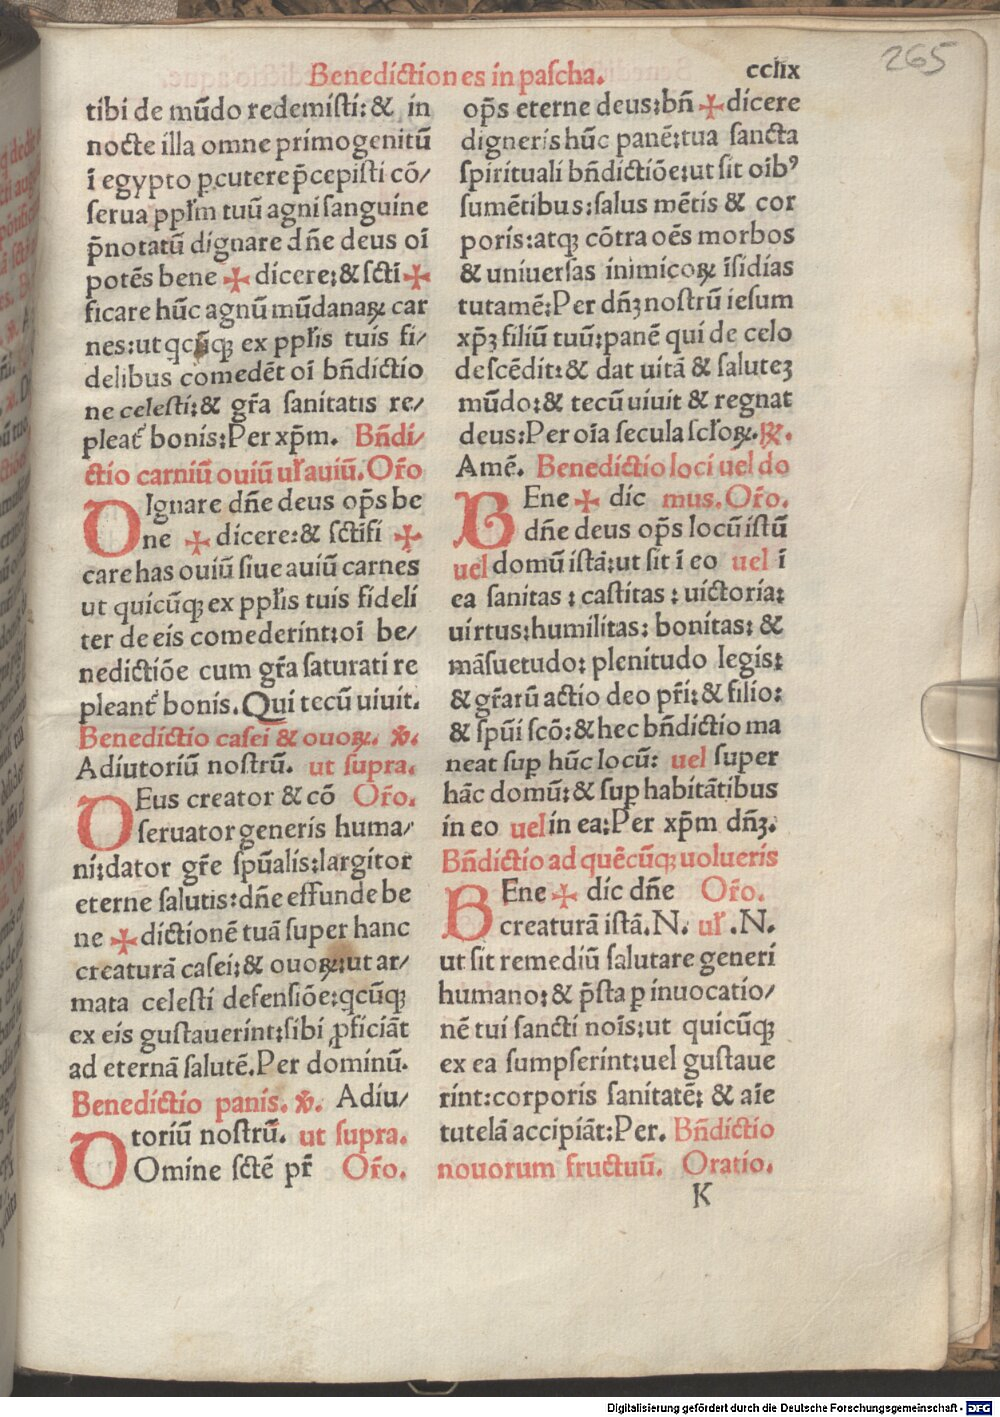 265
Benedictiones in pascha. cclix
tibi de mūdo redemisti: & in
nocte illa omne primogenitū
ī egypto ꝑcutere p̄cepisti cō/
serua pp̄l'm tuū agni sanguine
p̄notatū dignare dn̄e deus oī
potēs bene ✠ dicere: & sc̄ti ✠
ficare hūc agnū mūdanaꝝ car
nes: ut qcūqꝫ ex ppl'is tuis fi/
delibus comedēt oī bn̄dictio
ne celesti: & gr̄a sanitatis re/
pleat' bonis: Per xp̄m. Bn̄di/
ctio carniū ouiū ul' auiū. Or̄o
DIgnare dn̄e deus op̄s be
ne ✠ dicere: & sc̄tifi ✠
care has ouiū siue auiū carnes
ut quicūqꝫ ex ppl'is tuis fideli
ter de eis comederint: oī be/
nedictiōe cum gr̄a saturati re
pleant' bonis. Qui tecū uiuit.
Benedictio casei & ouoꝝ. ℣.
Adiutoriū nostrū. ut supra.
DEus creator & cō Or̄o.
seruator generis huma/
ni: dator gr̄e sp̄ualis: largitor
eterne salutis: dn̄e effunde be
ne ✠ dictionē tuā super hanc
creaturā casei: & ouoꝝ: ut ar/
mata celesti defensiōe: qcūqꝫ
ex eis gustauerint: sibi ꝓficiāt
ad eternā salutē. Per dominū.
Benedictio panis. ℣. Adiu/
toriū nostrū. ut supra.
DOmine sc̄tē pr̄ Or̄o.
op̄s eterne deus: bn̄ ✠ dicere
digneris hūc panē: tua sancta
spirituali bn̄dictiōe: ut sit oīb⁹
sumētibus: salus mētis & cor
poris: atqꝫ cōtra oēs morbos
& uniuersas inimicoꝝ īsidias
tutamē: Per dn̄ꝫ nostrū iesum
xp̄ꝫ filiū tuū: panē qui de celo
descēdit: & dat uitā & saluteꝫ
mūdo: & tecū uiuit & regnat
deus: Per oīa secula scl'oꝝ. ℟.
Amē. Benedictio loci uel do
BEne ✠ dic mus. Or̄o.
dn̄e deus op̄s locū istū
uel domū istā: ut sit ī eo uel ī
ea sanitas: castitas: uictoria:
uirtus: humilitas: bonitas: &
māsuetudo: plenitudo legis:
& gr̄arū actio deo pr̄i: & filio:
& sp̄ui scō: & hec bn̄dictio ma
neat suꝑ hūc locū: uel super
hāc domū: & suꝑ habitātibus
in eo uel in ea: Per xp̄m dn̄ꝫ.
Bn̄dictio ad quēcūqꝫ uolueris
BEne ✠ dic dn̄e Or̄o.
creaturā istā. N. ul'. N.
ut sit remediū salutare generi
humano: & p̄sta ꝑ inuocatio/
nē tui sancti nōis: ut quicūqꝫ
ex ea sumpserint: uel gustaue
rint: corporis sanitatē: & aīe
tutelā accipiāt: Per. Bn̄dictio
nouorum fructuū. Oratio.
K
Digitalisierung gefördert durch die Deutsche Forschungsgemeinschaft - DFG